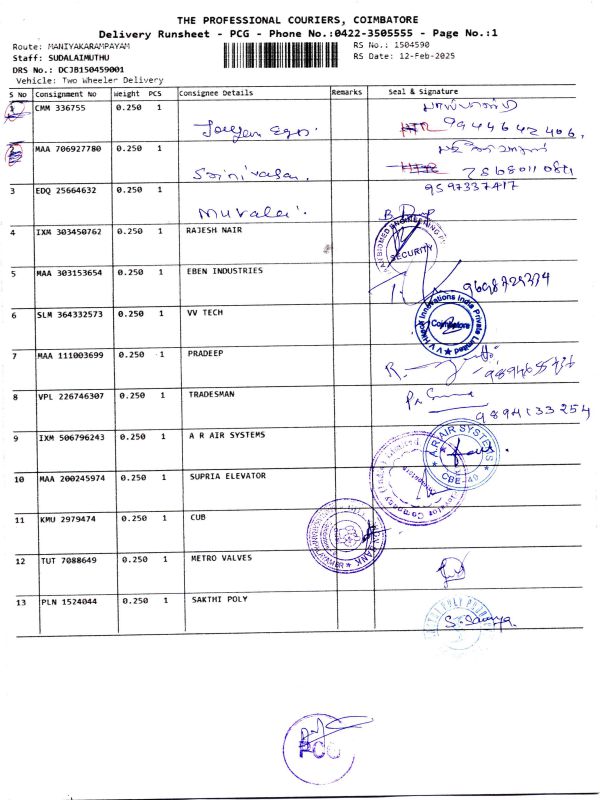 THE PROFESSIONAL COURIERS, COIMBATORE
Delivery Runsheet - PCG - Phone No.:0422-3505555 - Page No.:1
Route: MANIYAKARAMPAYAM RS No.: 1504590
Staff: SUDALAIMUTHU RS Date: 12-Feb-2025
DRS No.: DCJB150459001
Vehicle: Two Wheeler Delivery
S No Consignment No Weight PCS Consignee Details Remarks Seal & Signature
1 CMM 336755 0.250 1
HTR 9944642406,
2 MAA 706927780 0.250 1
Srinivasan. HTR
3 EDQ 25664632 0.250 1 9597337417
Muralai.
4 IXM 303450762 0.250 1 RAJESH NAIR
SECURITY
5 MAA 303153654 0.250 1 EBEN INDUSTRIES
6 SLM 364332573 0.250 1 VV TECH
Innovations India Private Limited
Coimbatore
7 MAA 111003699 0.250 1 PRADEEP
8 VPL 226746307 0.250 1 TRADESMAN
9894133254
9 IXM 506796243 0.250 1 A R AIR SYSTEMS
A.R AIR SYSTEMS
CBE-40
10 MAA 200245974 0.250 1 SUPRIA ELEVATOR
11 KMU 2979474 0.250 1 CUB
BANK
12 TUT 7088649 0.250 1 METRO VALVES
13 PLN 1524044 0.250 1 SAKTHI POLY
PCG